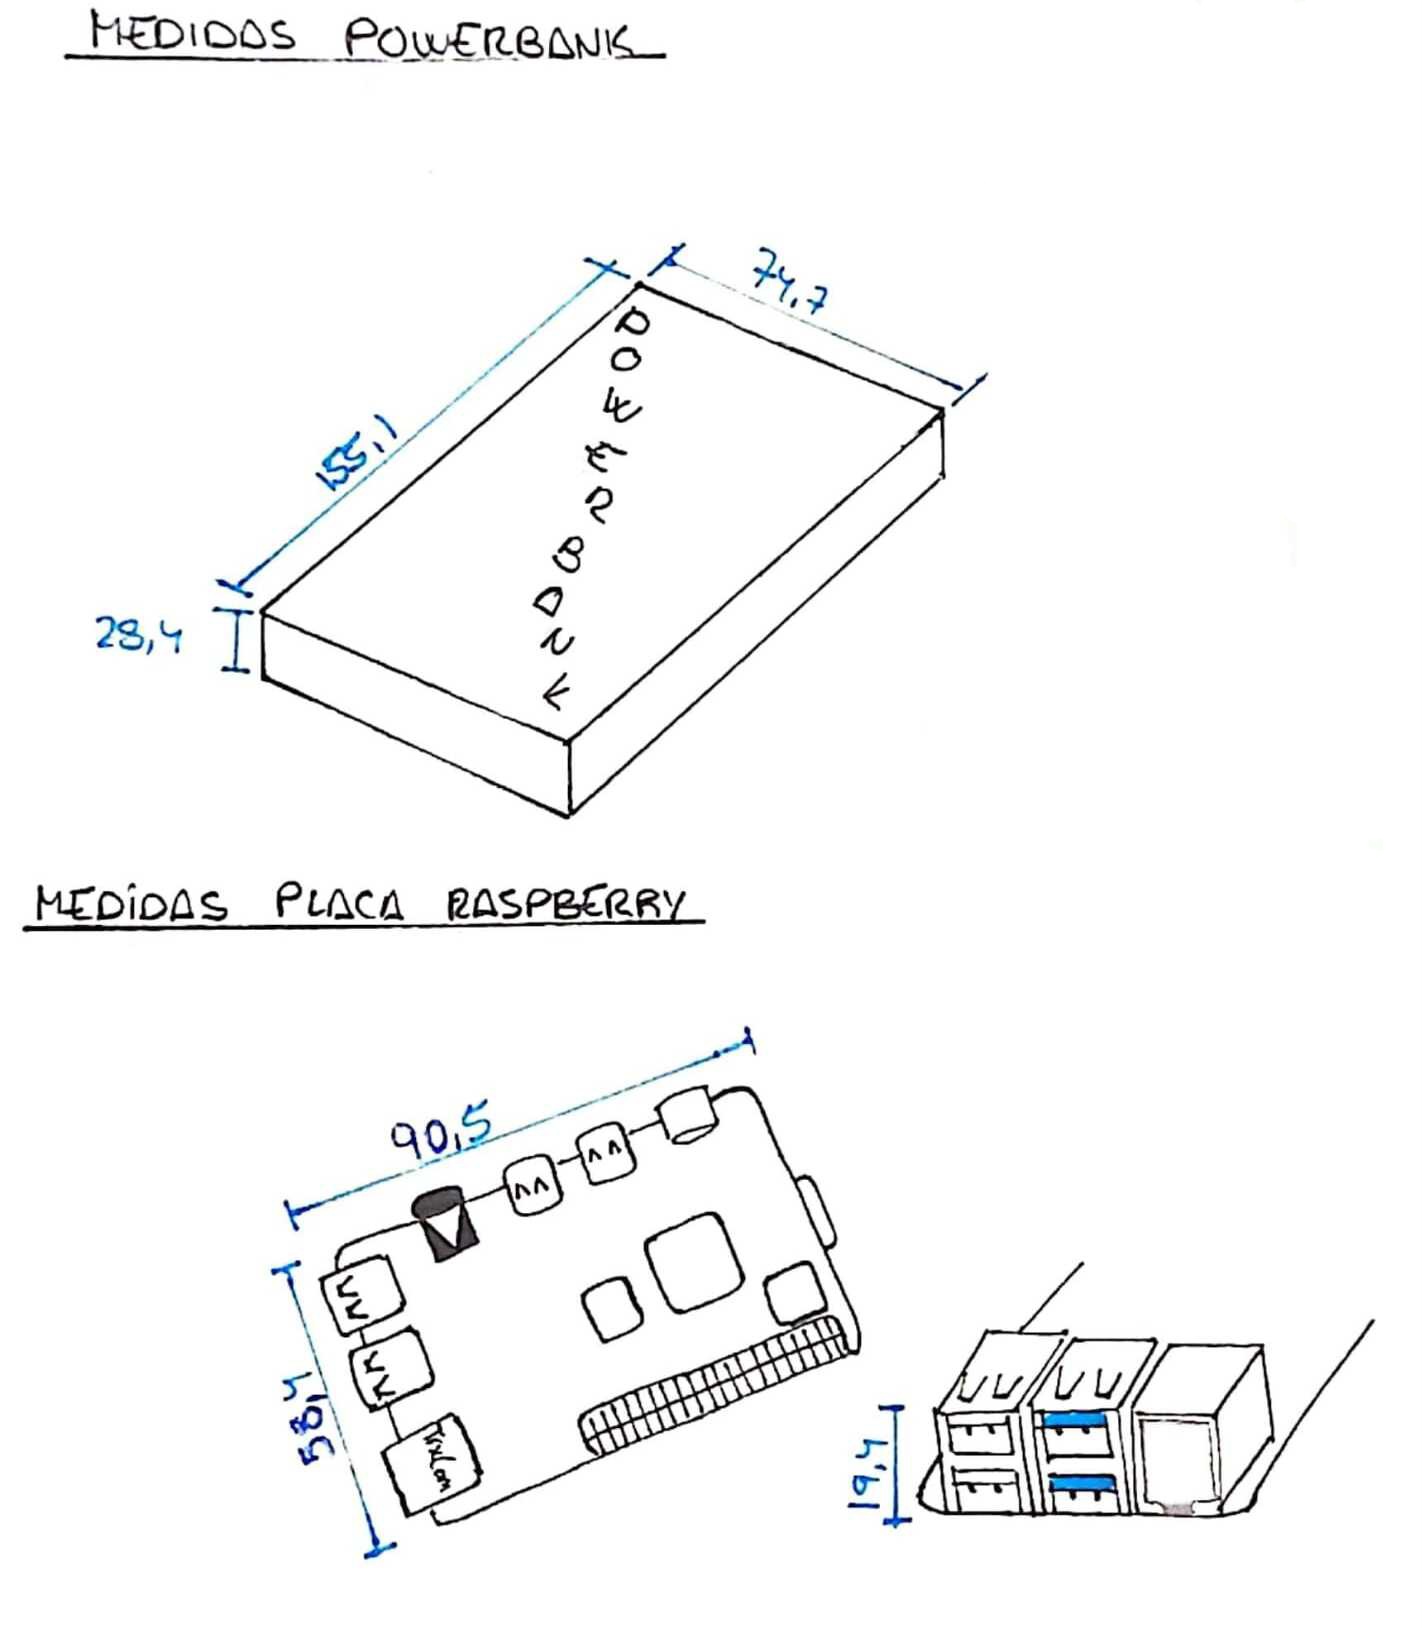 MEDIDAS POWERBANK
74,7
155,1
28,4
POWERBANK
MEDIDAS PLACA RASPBERRY
90,5
58,4
TRXCom
19,4